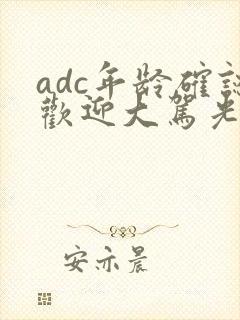 adc年龄確認
歡迎大駕光
安亦晨